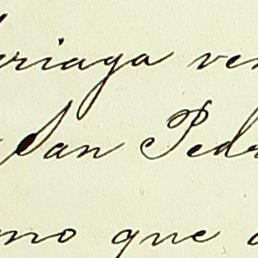 riaga ve
San Ped
mo que